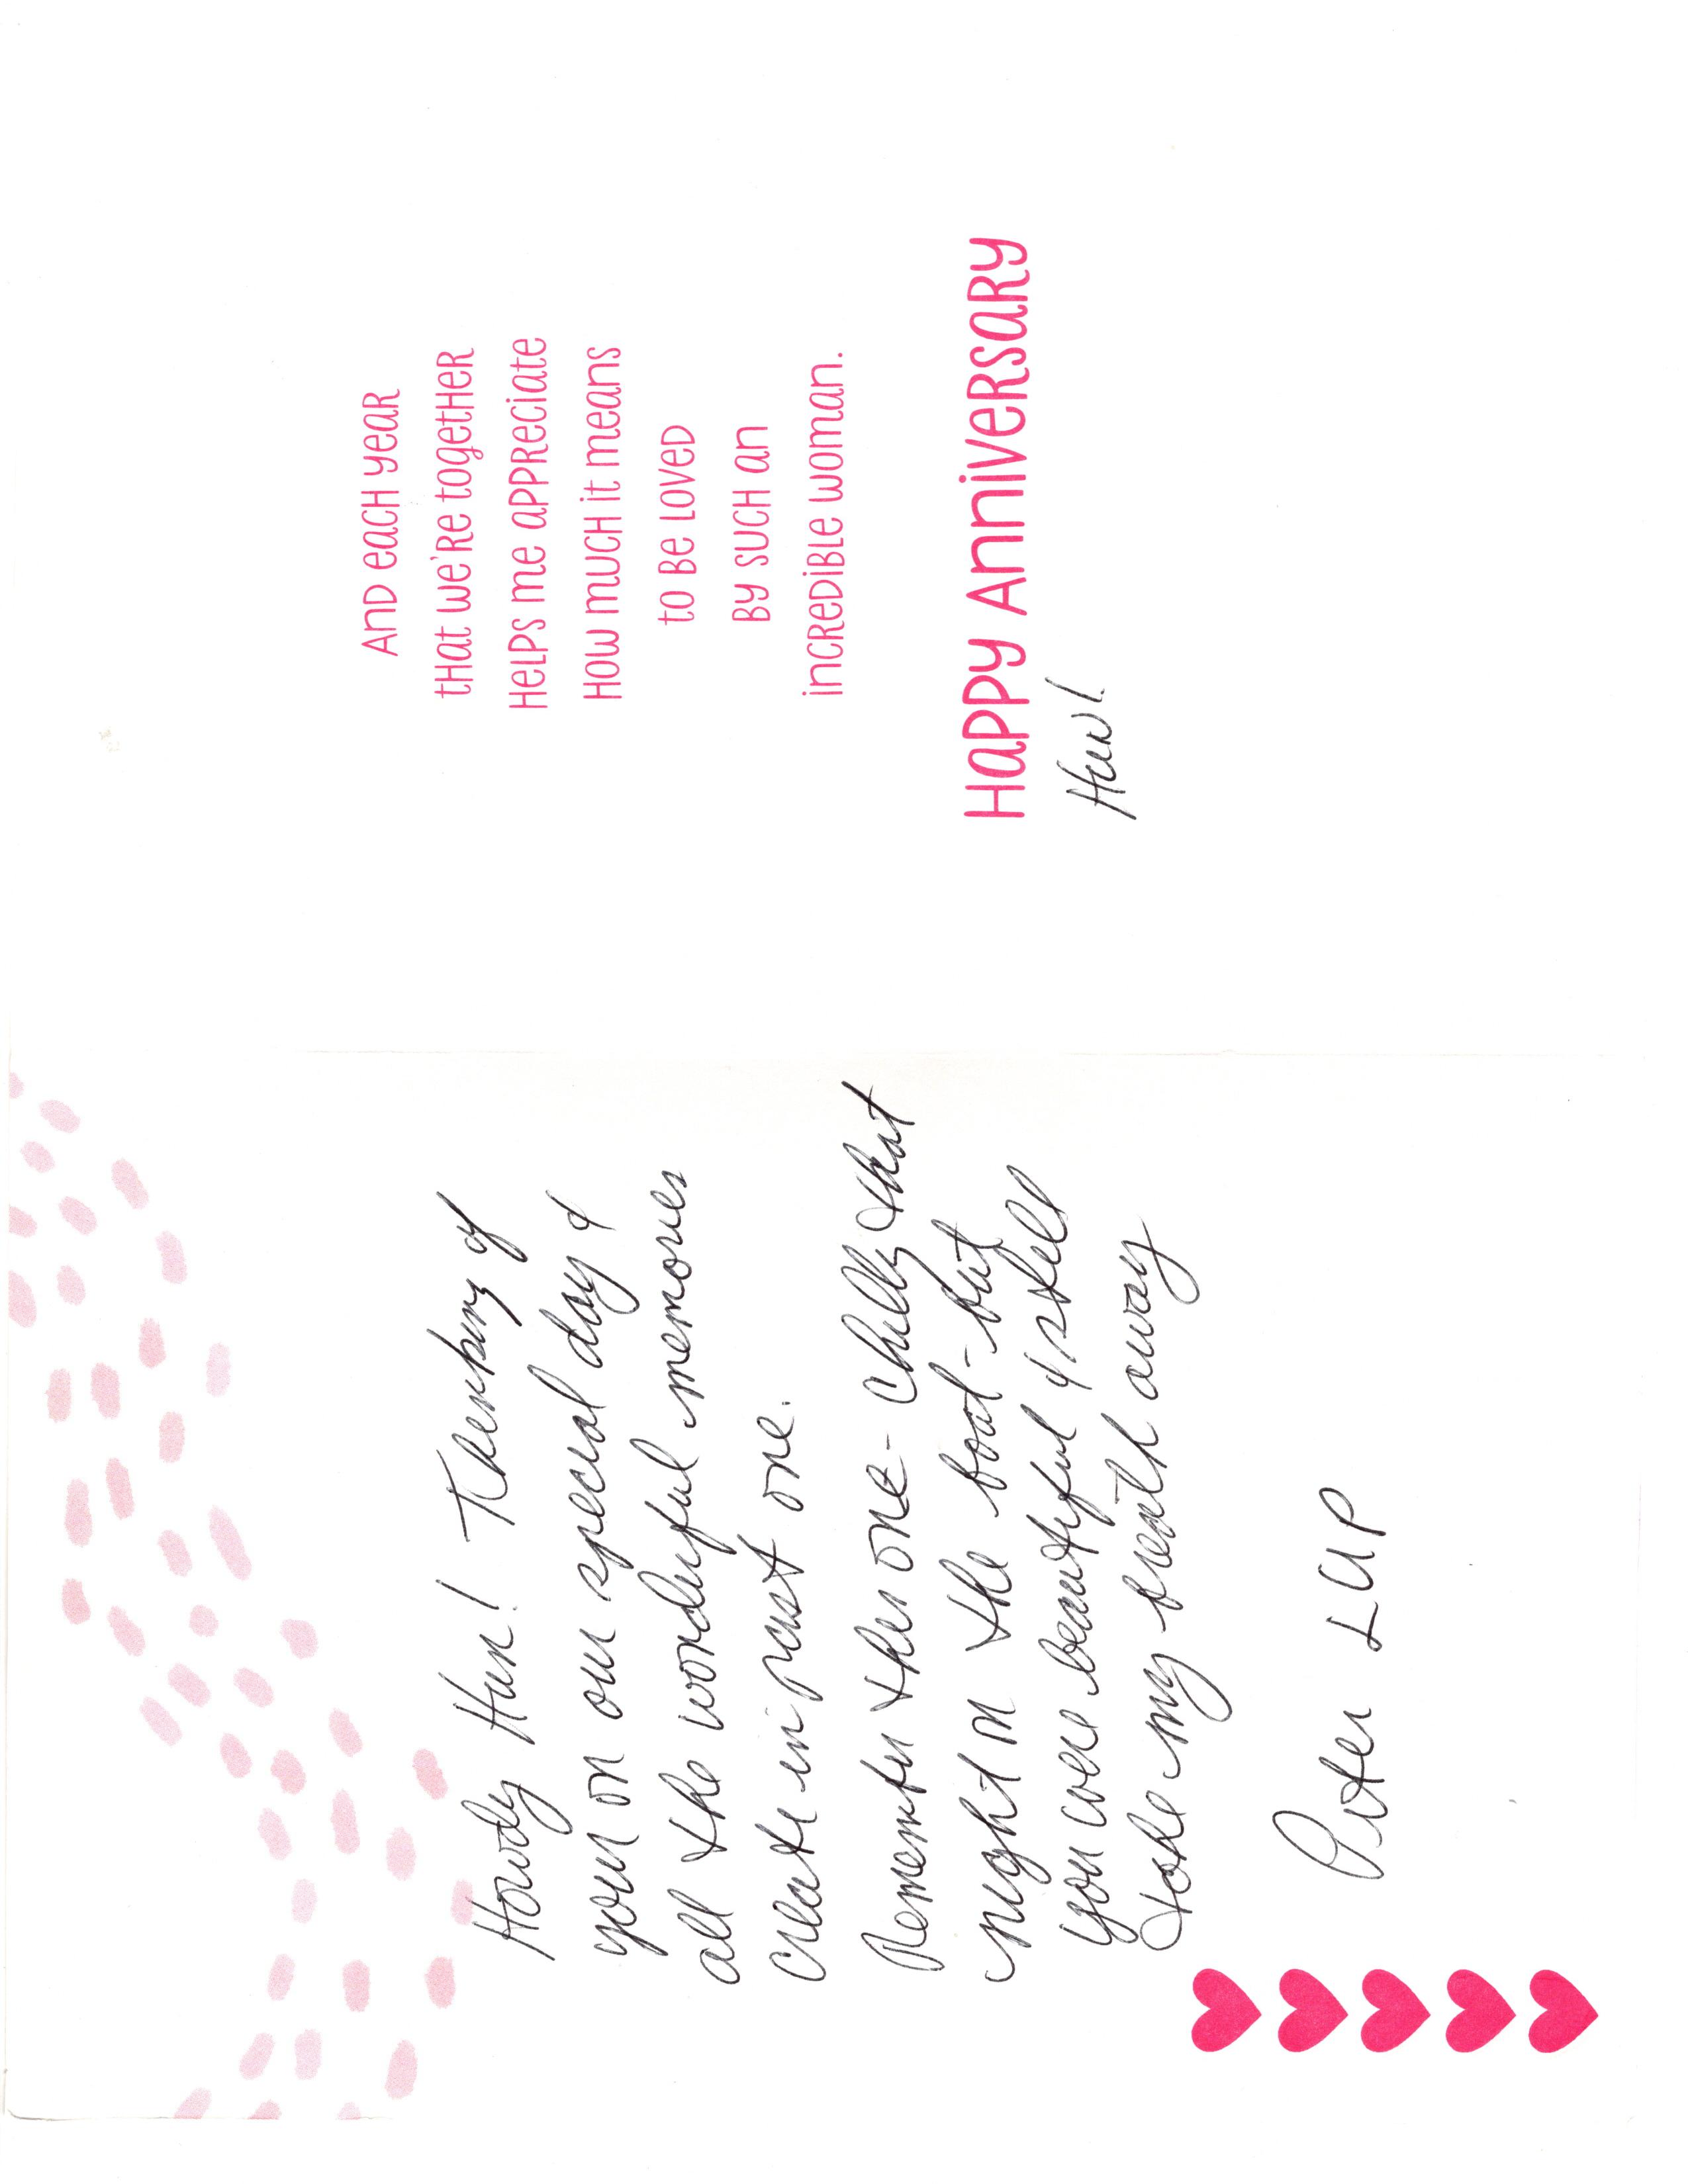 Howdy Hun! Thinking of
you on our special day &
all the wonderful memories
create in past one.
Remember this one - chilly that
night on the boat - but
you were beautiful & still
take my breath away
LUP
And each year
that we're together
Helps me appreciate
How much it means
to be loved
by such an
incredible woman.
Happy Anniversary
Hun!